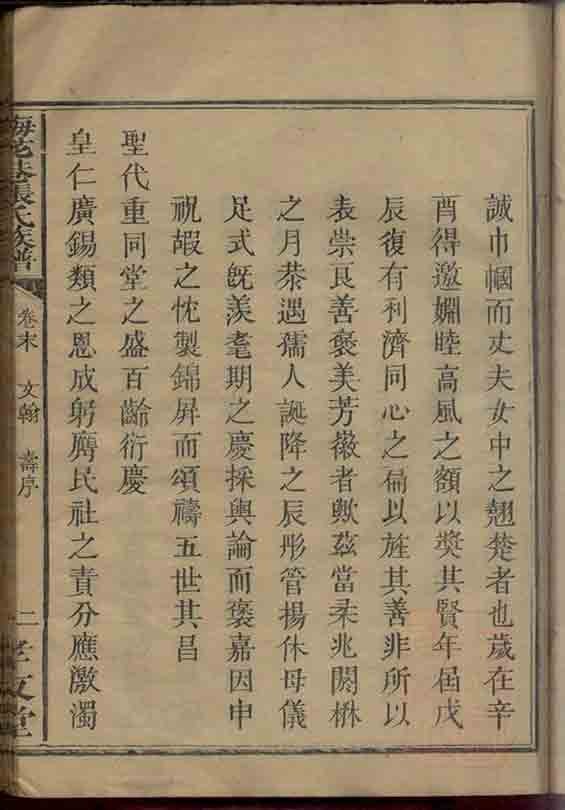 誠巾幗而丈夫女中之翹楚者也歲在辛
酉得邀嫻睦高風之額以獎其賢年屆戊
辰復有利濟同心之扁以旌其善非所以
表崇良善褒美芳徽者歟茲當釆兆閼楙
之月恭遇孺人誕降之辰彤管揚休母儀
足式旣羨耄期之慶採輿論而褒嘉因申
祝嘏之忱製錦屏而頌禱五世其昌
聖代重同堂之盛百齡衍慶
皇仁廣錫類之恩成躬膺民社之責分應激濁
張氏族譜
卷末 文翰 壽序
二
孝友堂